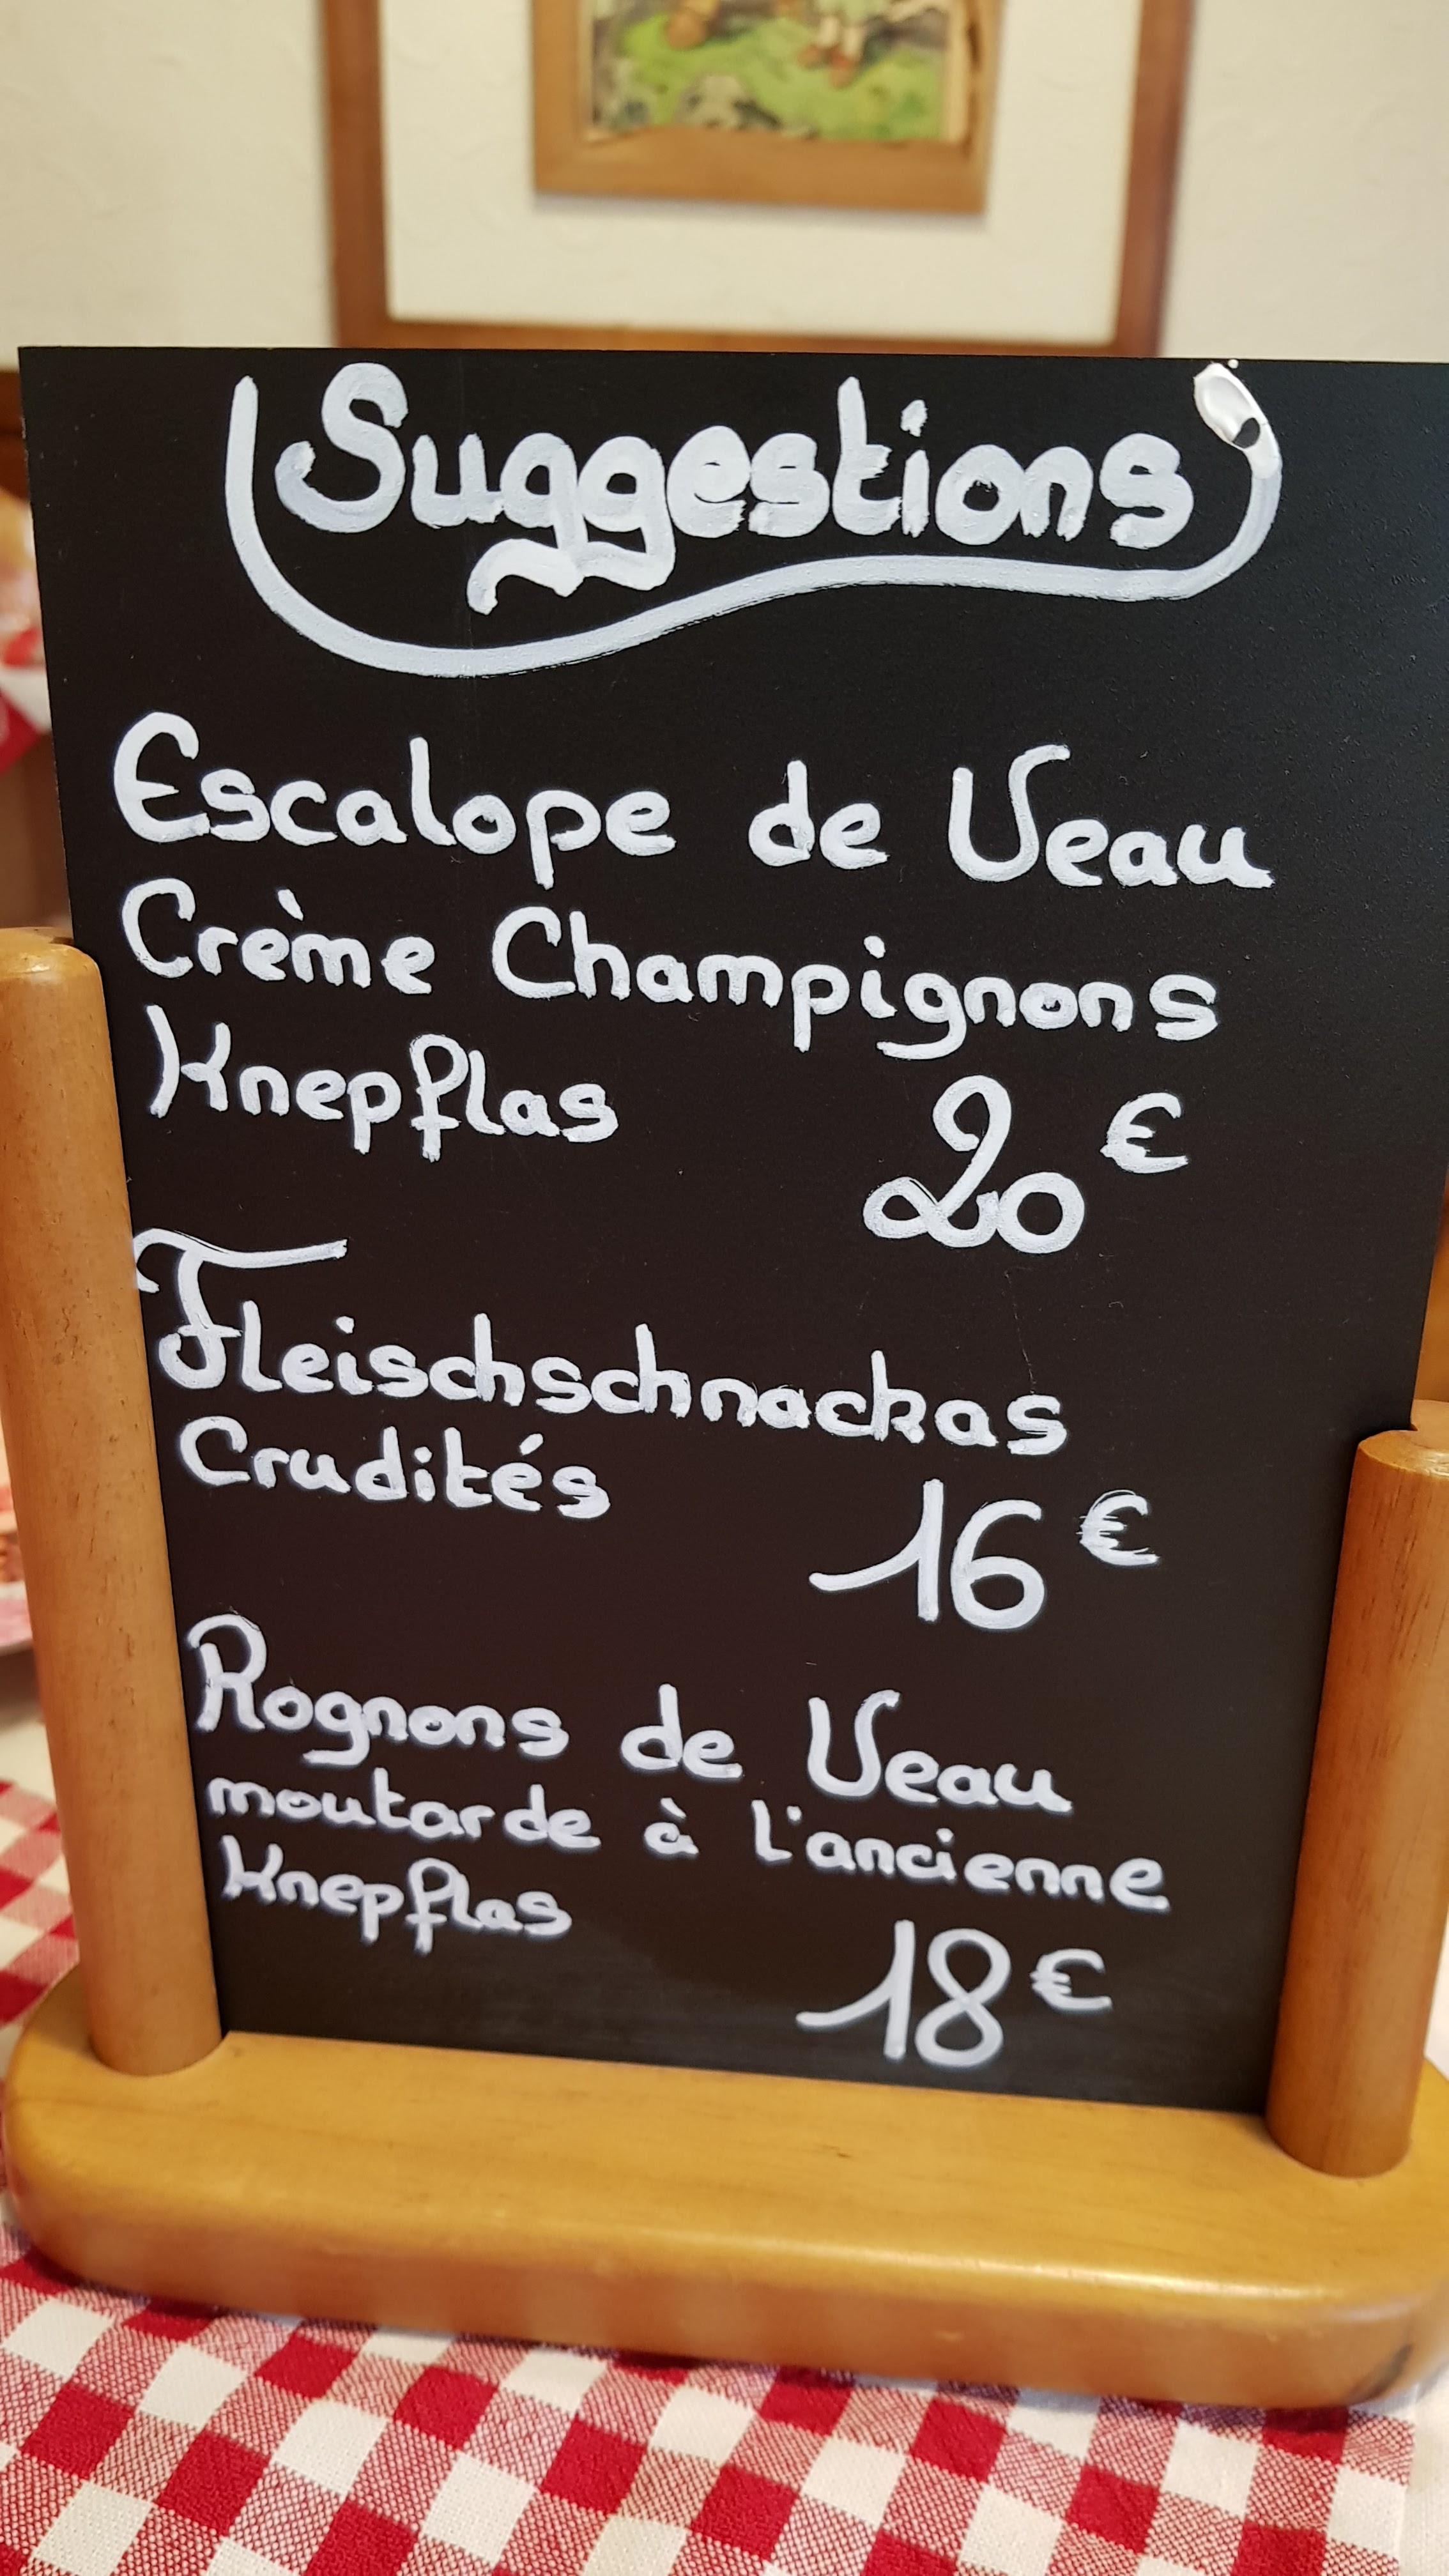 Suggestions
Escalope de Veau
Crème Champignons
Knepflas
20 €
Fleischschnackas
Crudités
16 €
Rognons de Veau
moutarde à l'ancienne
Knepflas
18 €